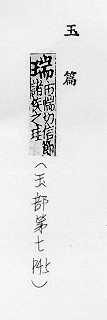 玉篇
瑞
市惴切信節
諸侯之珪
(玉部第七 P45)